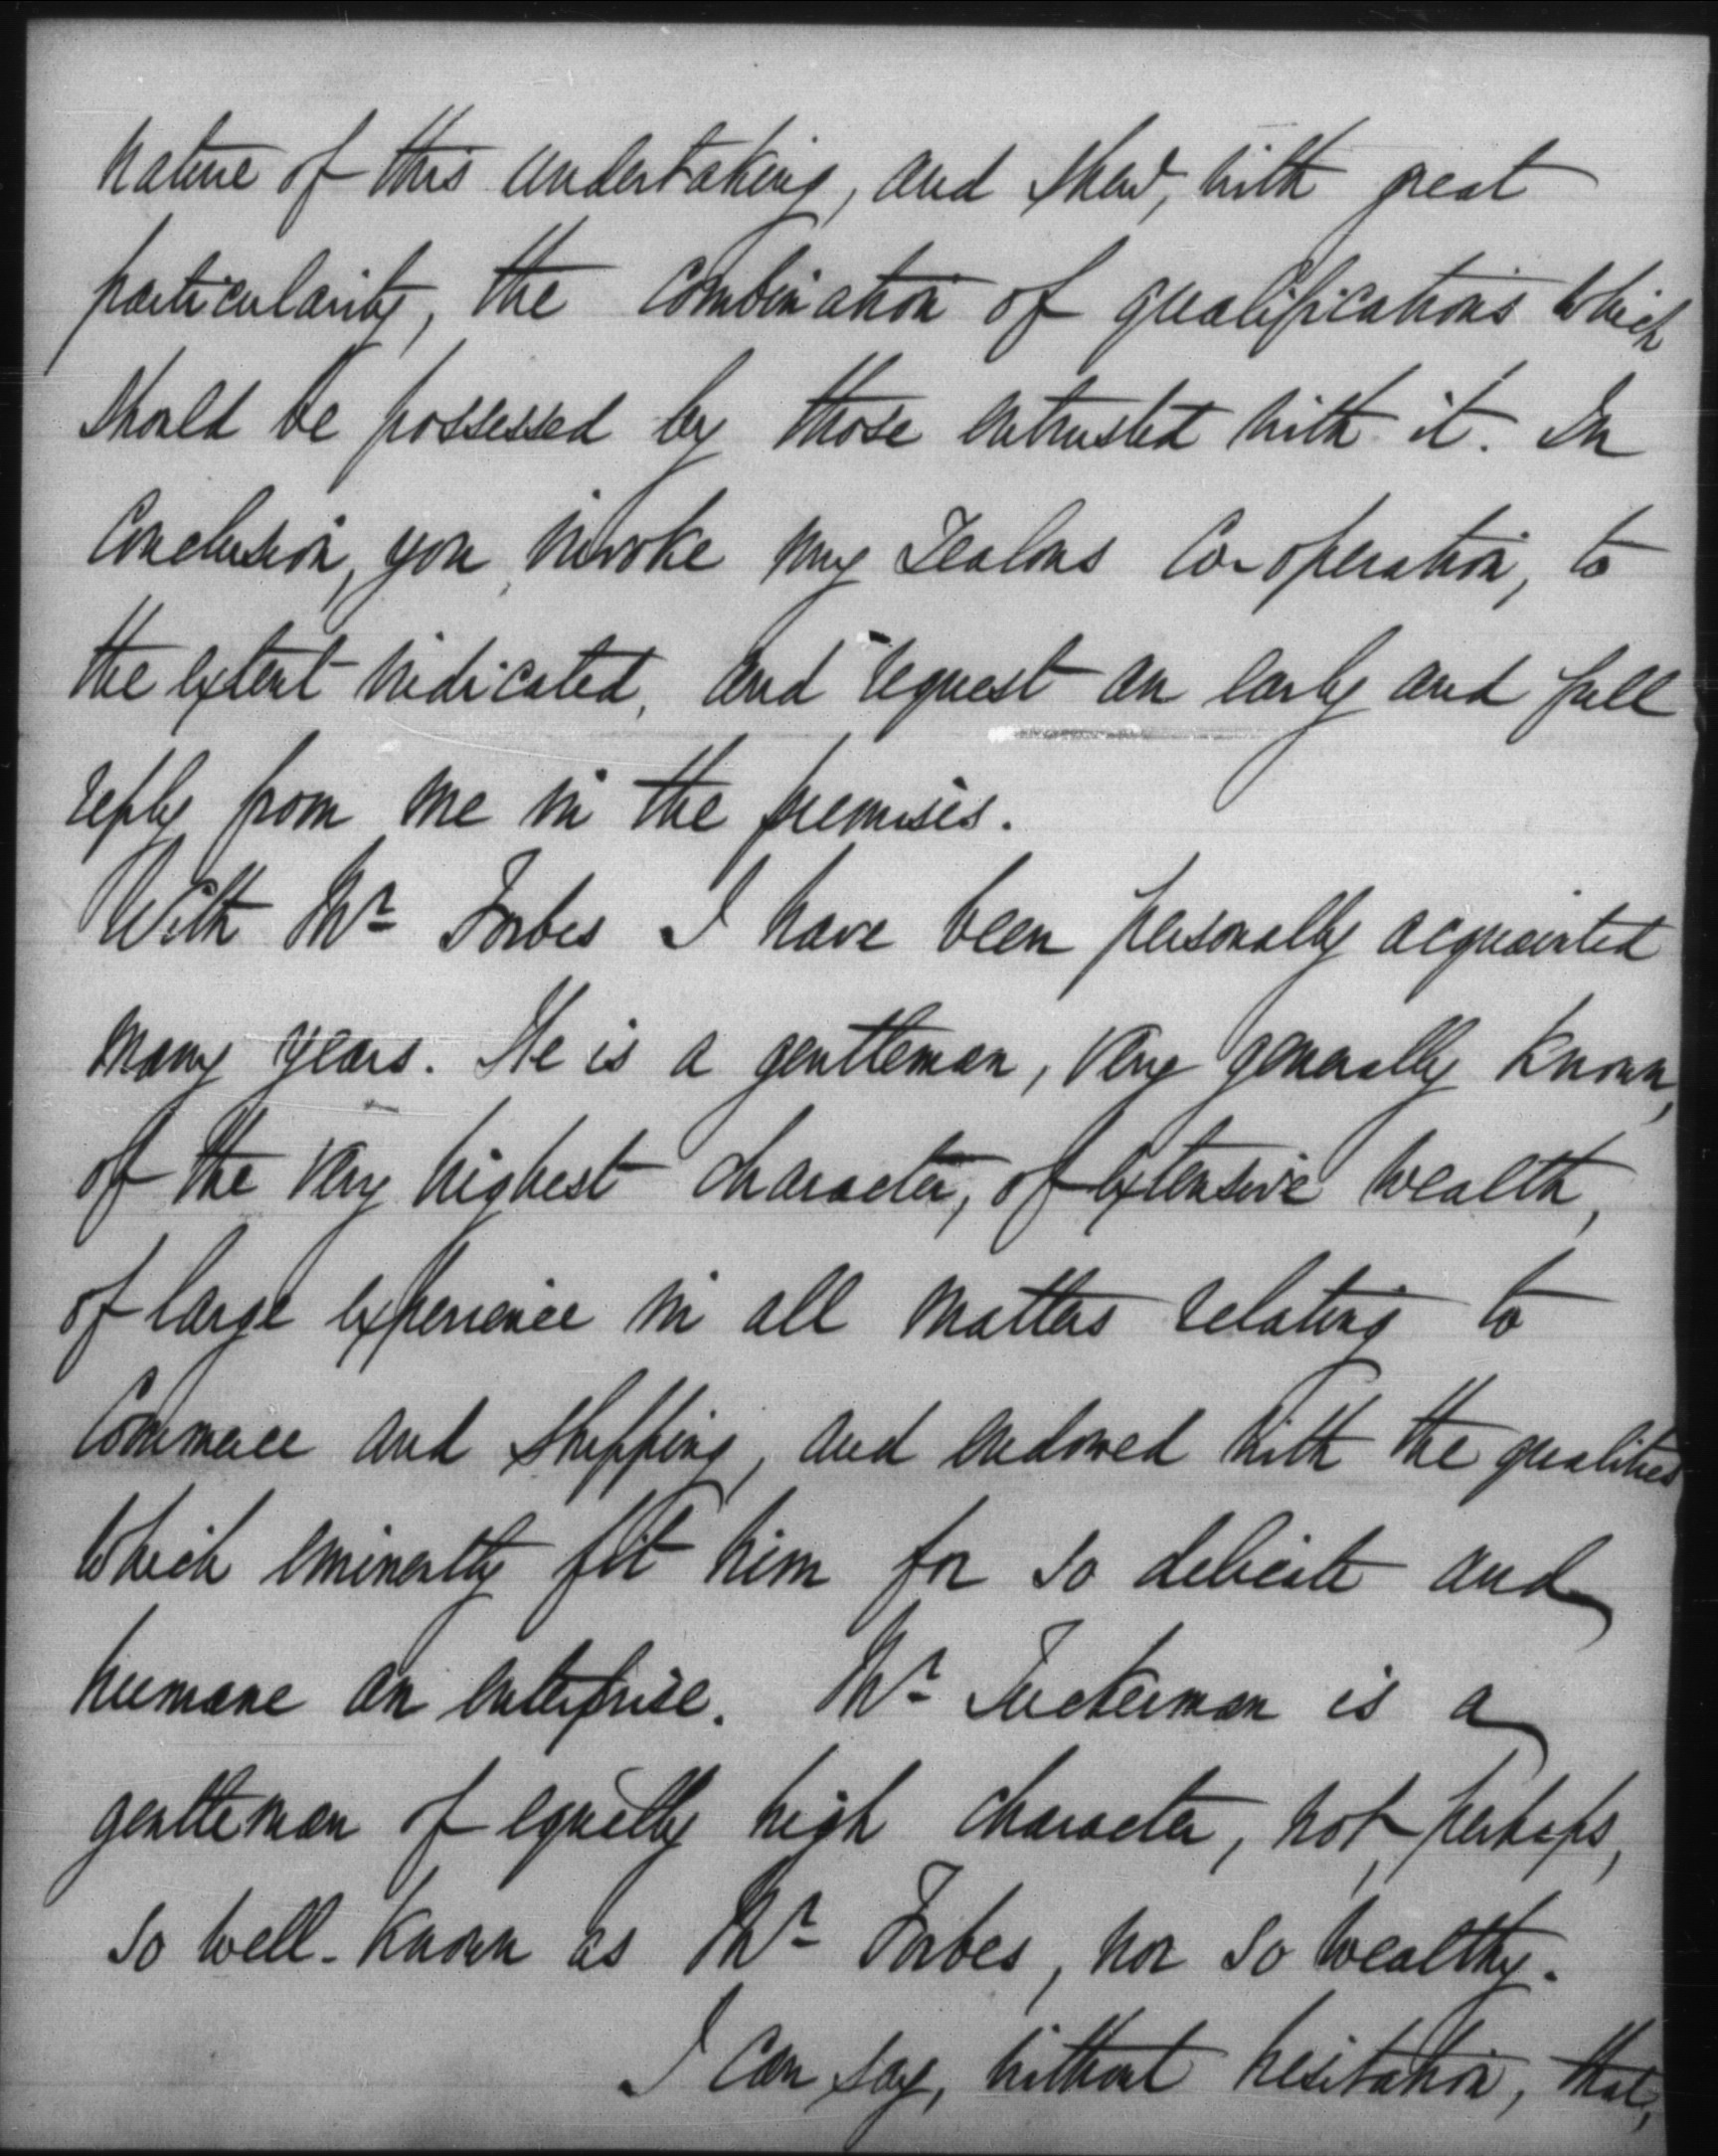 nature of this undertaking, and shew, with great
particularity, the combination of qualifications which
should be possessed by those entrusted with it. In
Conclusion, you invoke my zealous Co-operation, to
the extent indicated, and request an early and full
reply from me in the premises.
With Mr Forbes I have been personally acquainted
many years. He is a gentleman, very generally known,
of the very highest character, of extensive wealth,
of large experience in all matters relating to
Commerce and shipping, and endowed with the qualities
which eminently fit him for so delicate and
humane an enterprise. Mr Tuckerman is a
gentleman of equally high character, not, perhaps,
so well-known as Mr Forbes, nor so wealthy.
I can say, without hesitation, that,